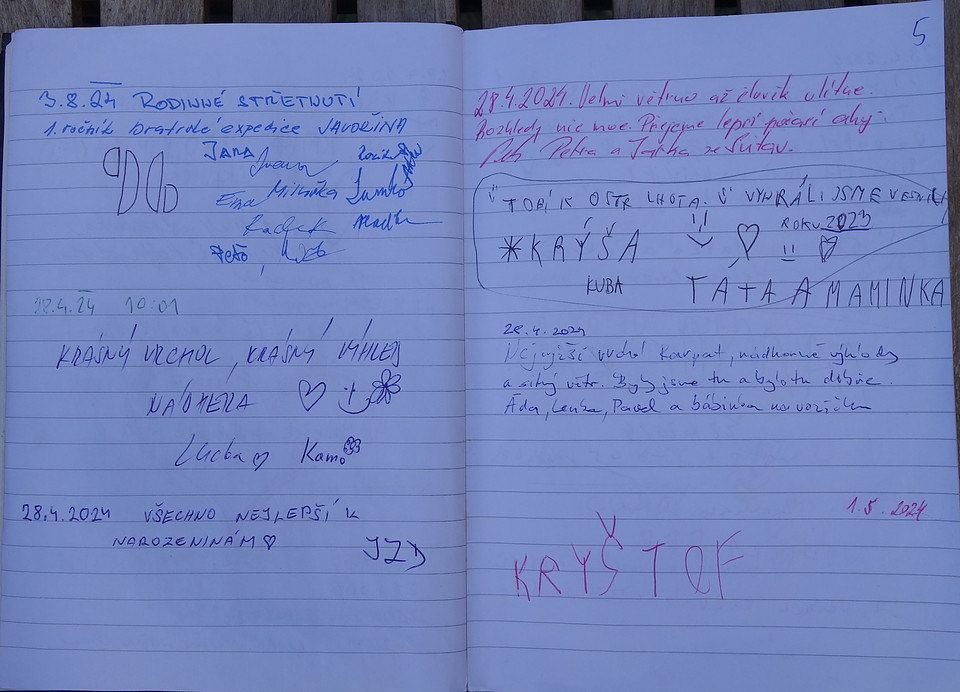 3.8.24 RODINNÉ STŘETNUTÍ
1. ročník bratrské expedice JAVOŘINA
JANA
Ema Miluška
Radek
Peťo,
28.4.24 10:01
KRÁSNÝ VRCHOL, KRÁSNÝ VÝHLED
NÁDHERA
Lucba Kamo
28.4.2024 VŠECHNO NEJLEPŠÍ K
NAROZENINÁM
JZD
5
28.4.2024. Velmi větrno až člověk ulítne.
Rozhledy nic moc. Přejeme lepší počasí
Petra a Jaffka ze Svitav.
OSTR LHOTA. VYHRÁLI JSME
ROKU 2023
KRÝŠA
KUBA
TÁTA A MAMINKA
28.4.2024
Nejvyšší vrchol Karpat, nádherné výhledy
a silný vítr. Byly jsme tu a bylo tu dobře.
Áda, Lenka, Pavel a bábinka na vozíčku
1.5.2024
KRYŠTOF